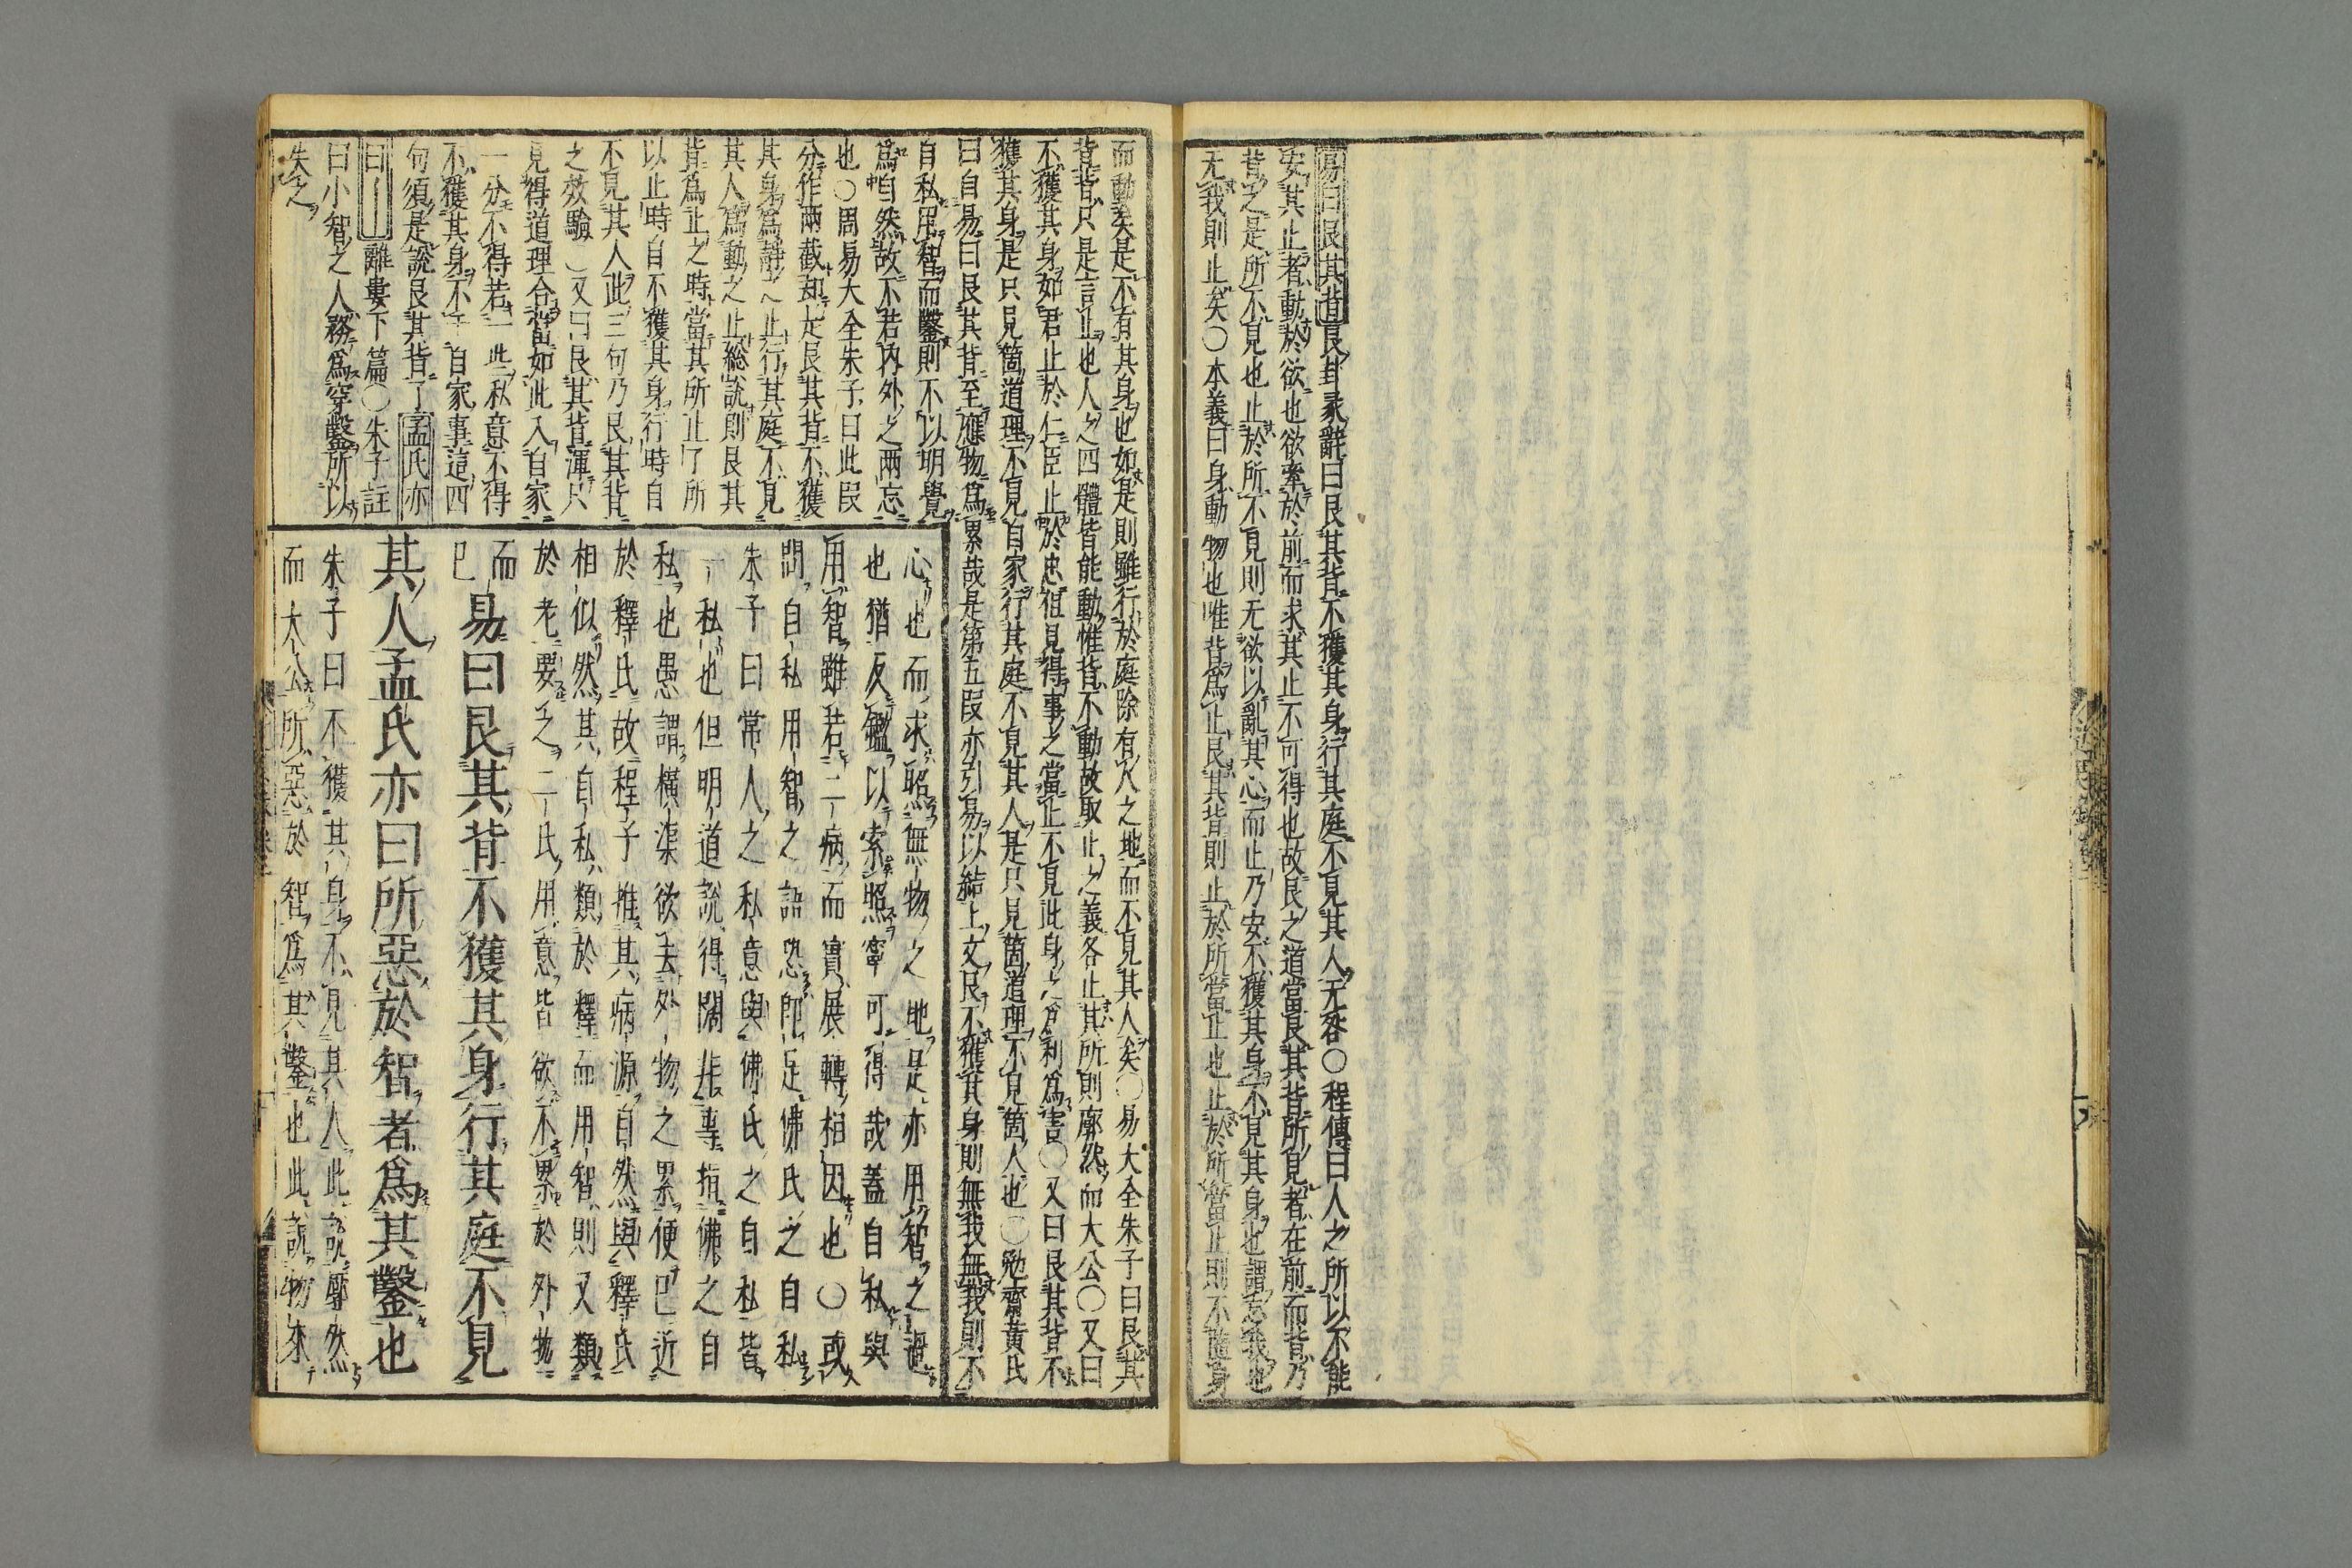 易曰艮其背艮卦彖辭曰艮其背不獲其身行其庭不見其人无咎○程傳曰人之所以不能
安其止者動於欲也欲牽於前而求其止不可得也故艮之道當艮其背所見者在前而背乃
背之是所不見也止於所不見則无欲以亂其心而止乃安不獲其身不見其身也謂忘我也
无我則止矣○本義曰身動物也唯背爲止艮其背則止於所當止也止於所當止則不隨身
而動矣是不有其身也如是則雖行於庭除有人之地而不見其人矣○易大全朱子曰艮其
背背只是言止也人之四體皆能動惟背不動故取止之義各止其所則廓然而大公○又曰
不獲其身如君止於仁臣止於忠祖見得事之當止不見此身之爲利爲害○又曰艮其背不
獲其身是只見箇道理不見自家行其庭不見其人是只見箇道理不見箇人也○勉齋黃氏
曰自易曰艮其背至應物爲累哉是第五段亦引易以結上文艮不獲其身則無我無我則不
自私用智而鑿則不以明覺
爲自然故不若內外之兩忘
也○周易大全朱子曰此段
分作兩截却是艮其背不獲
其身爲靜之止行其庭不見
其人爲動之止總說則艮其
背爲止之時當其所止了所
以止時自不獲其身行時自
不見其人此三句乃艮其背
之效驗 又曰艮其背渾只
見得道理合當如此入自家
一分不得若一些私意不得
不獲其身不干自家事這四
句須是說艮其背了孟氏亦
曰離婁下篇○朱子註
曰小智之人務爲穿鑿所以
失之
心也而求照無物之地是亦用智之過
也猶反鑑以索照寧可得哉蓋自私與
用智雖若二病而實展轉相因也○或
問自私用智之語恐卽是佛氏之自私
朱子曰常人之私意與佛氏之自私皆
一私也但明道說得闊非專指佛之自
私也愚謂橫渠欲去外物之累便已近
於釋氏故程子推其病源自然與釋氏
相似然其自私類於釋而用智則又類
於老要之二氏用意皆欲不累於外物
而已
易曰艮其背不獲其身行其庭不見
其人孟氏亦曰所惡於智者爲其鑿也
朱子曰不獲其身不見其人此說廓然
而大公所惡於智爲其鑿也此說物來